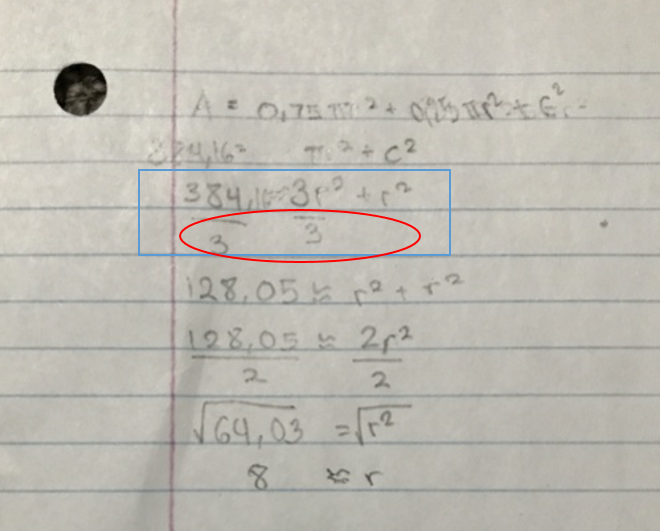 A = 0,75πr² + 0,25πr² + r²
384,16= πr² + r²
384,16≈ 3r² + r²
3 3
128,05 ≈ r² + r²
128,05 ≈ 2r²
2 2
√64,03 = √r²
8 ≈ r